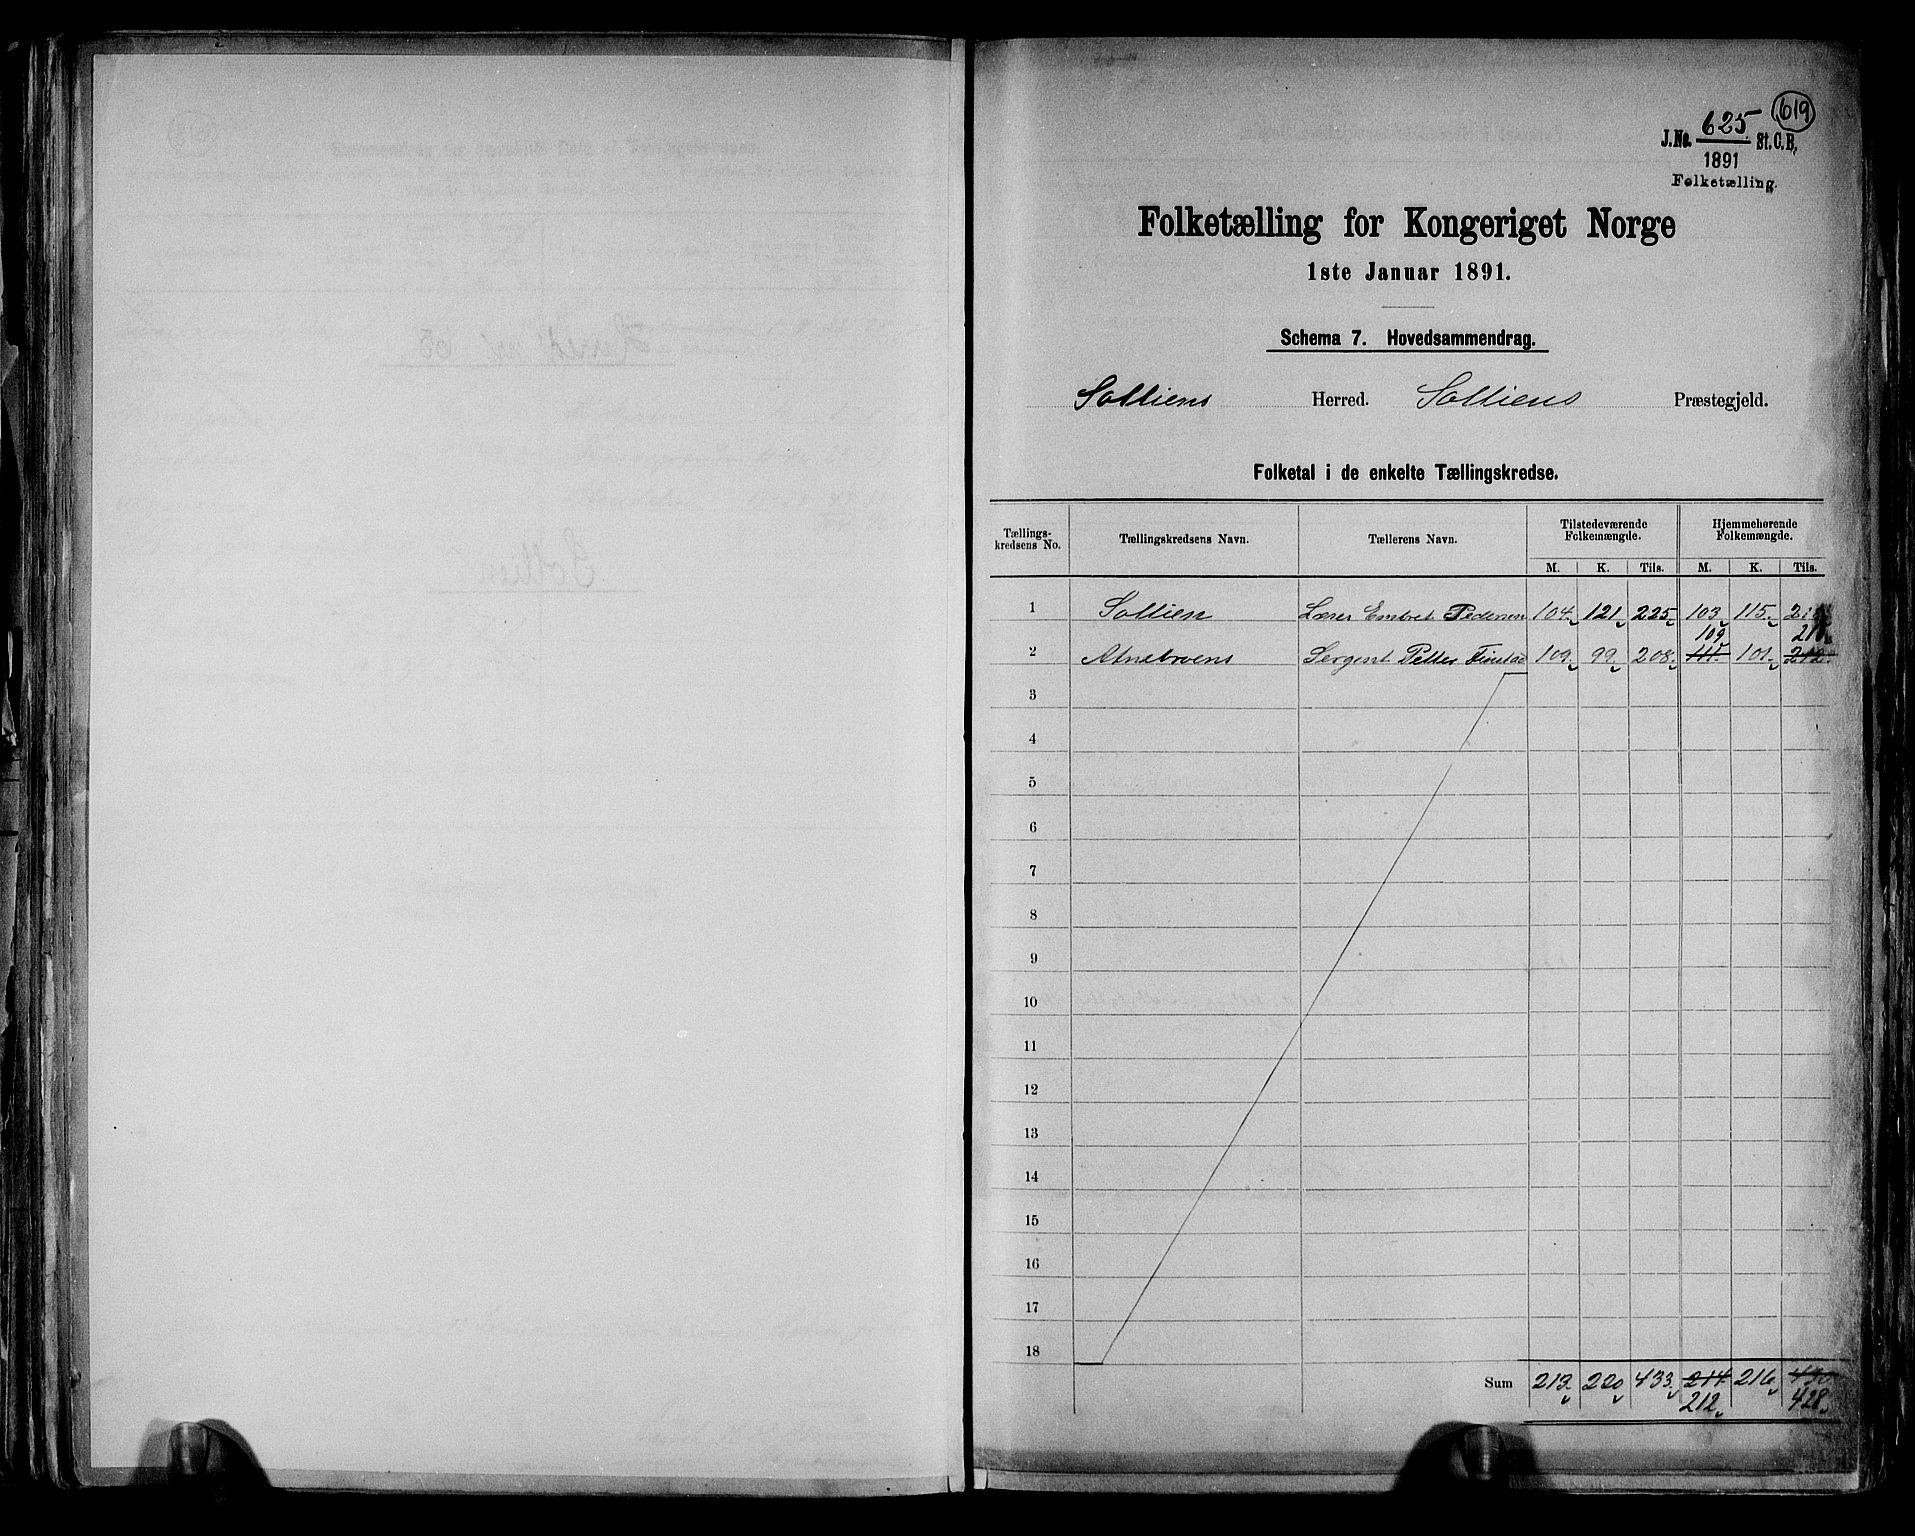 619
J.No. 625. St.C.B.
1891
Folketælling.
Folketælling for Kongeriget Norge
1ste Januar 1891.
Schema 7. Hovedsammendrag.
Solliens Herred. Solliens Præstegjeld.
Folketal i de enkelte Tællingskredse.
Tællings-kredsens No. Tællingskredsens Navn. Tællerens Navn. Tilstedeværende Folkemængde. Hjemmehørende Folkemængde.
M. K. Tils. M. K. Tils.
1 Sollien Lærer Embret Pedersen 104 121 225 103 115 218
109 210
2 Atnebroens Sergent Petter Finstad 109 99 208 111 101 212
3
4
5
6
7
8
9
10
11
12
13
14
15
16
17
18
Sum 213 220 433 214 216 430
212 428